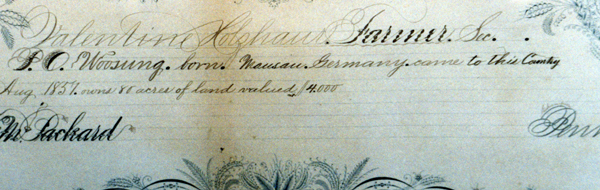 Valentine Holzhaut. Farmer. Sec. .
P. O. Woosung. born. Nausau. Germany. came to this County
Aug. 1857. owns 80 acres of land valued $4.000
M. Packard Penm